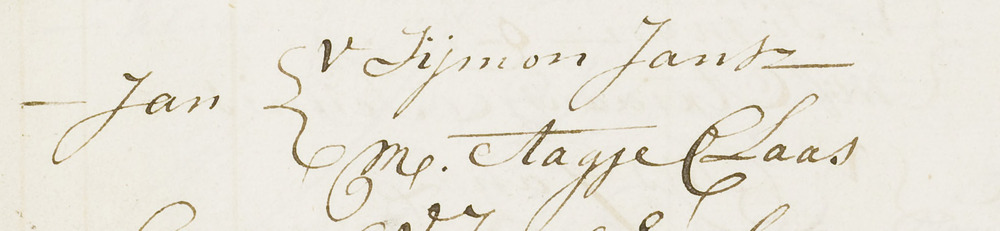 V Sijmon Jansz
— Jan
M. Aagje Claas